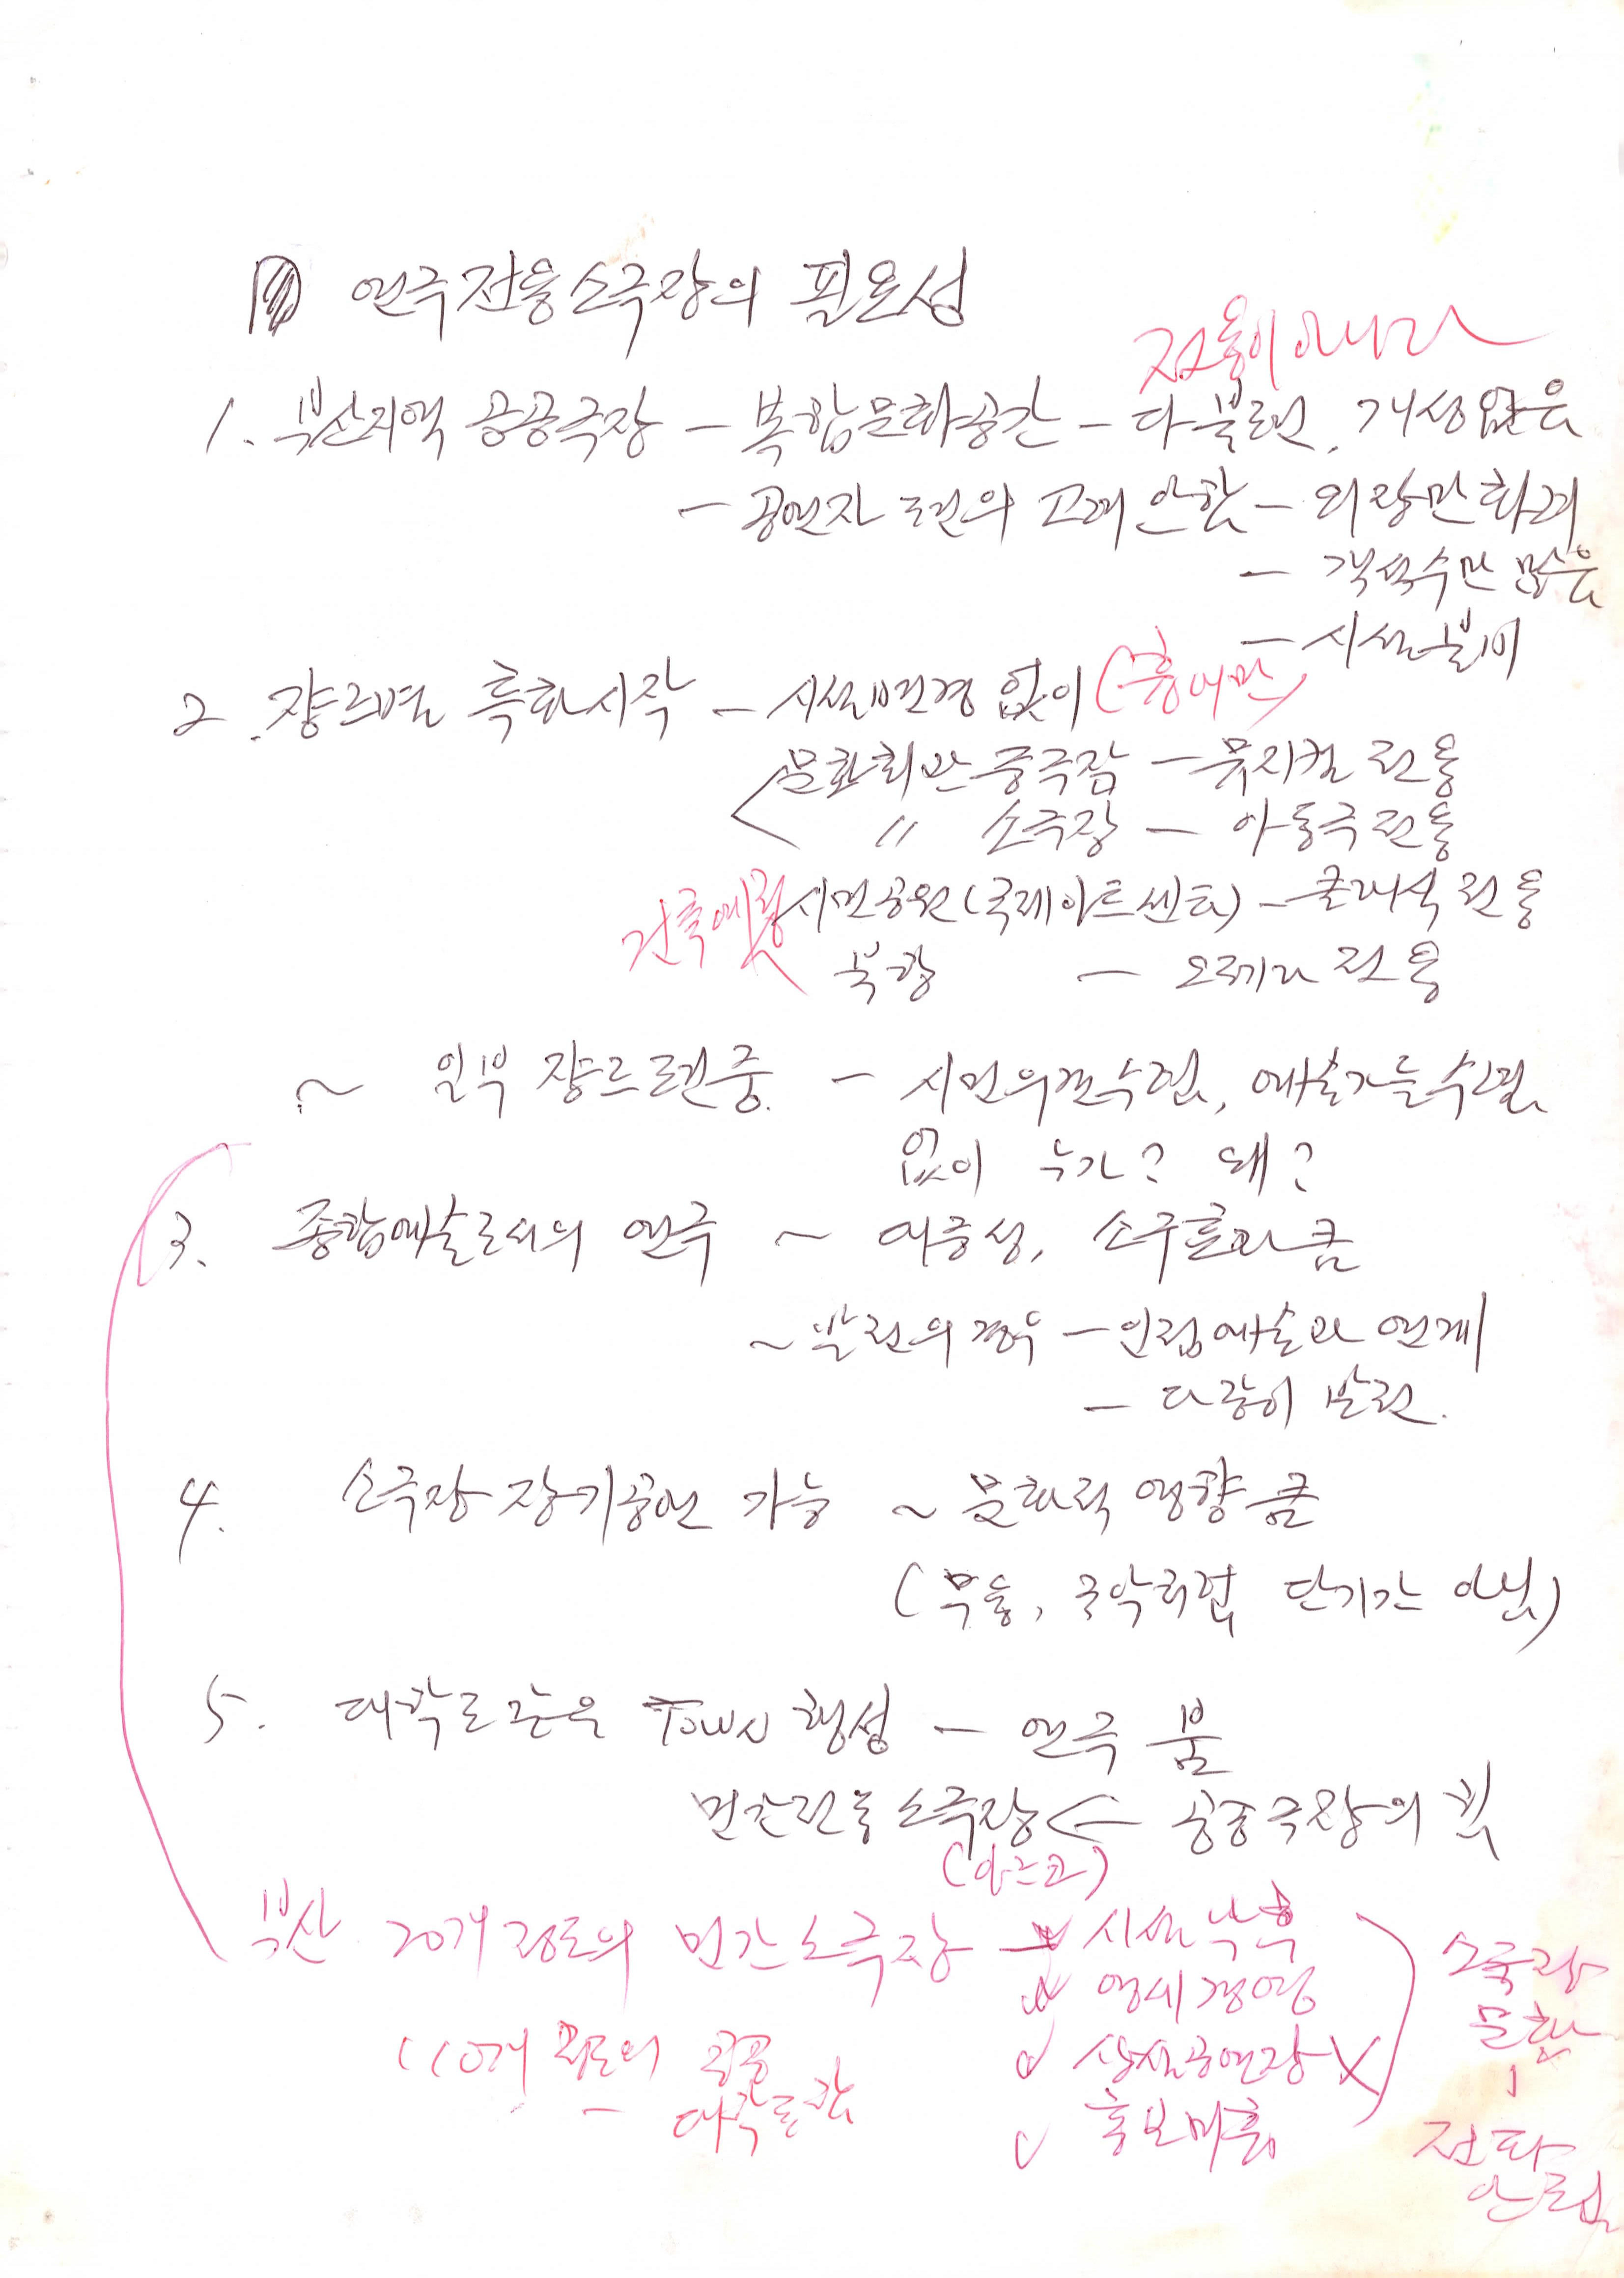 연극전용소극장의 필요성
전용이 아니라
1. 부산지역 공공극장 - 복합문화공간 - 다불련, 개성없음
- 공연자 편의 고려 안함 - 외향만 화려
- 객석수만 많음
- 시설불비
2. 쟝르별 특화시작 - 시설변경 없이 (용어만)
문화회관 중극장 - 뮤지컬 전용
〃 소극장 - 아동극 전용
건축예정 시민공원(국제아트센타) - 클래식 전용
북항 - 오페라 전용
~ 일부 쟝르편중 - 시민의견수렴, 예술가들 수렴
없이 누가? 왜?
3. 종합예술로서의 연극 ~ 대중성, 소구효과 큼
~ 발전의 경우 - 인접예술과 연계
- 다같이 발전.
4. 소극장 장기공연 가능 ~ 문화적 영향 큼
(무용, 국악처럼 단기간 아님)
5. 대학로 같은 Town 형성 - 연극 붐
민간전용소극장 ← 공공극장의 핵
(아르코)
부산 20개 정도의 민간소극장 - 시설낙후
영세경영
상설공연장 X
홍보미흡
(10개 정도의
대학로
소극장
문화
전파
안됨